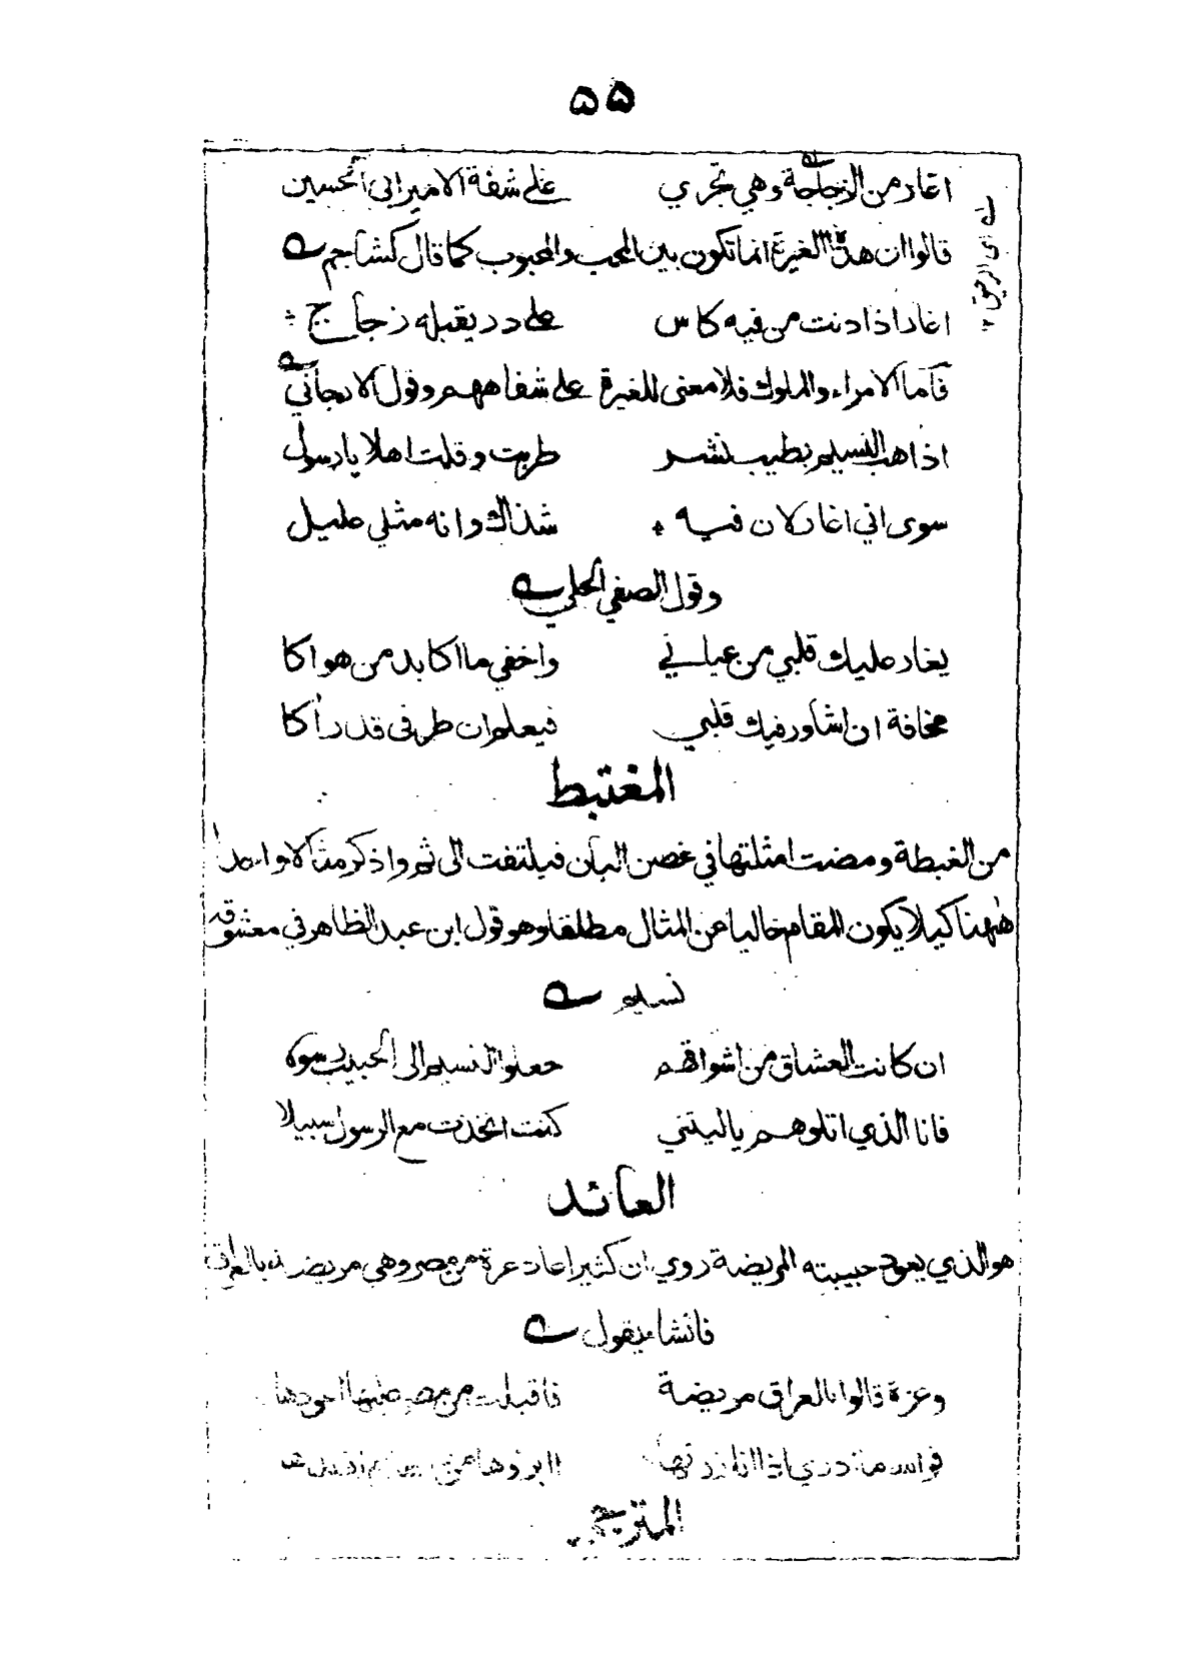 ۵۵
اغار من الزجاجة وهي تجري على شفة الامير ابي الحسين
له اى الرحيق ١٢
قالوا ان هذه الغيرة انما تكون بين المحب والمحبوب كما قال كشاجم
اغار اذا دنت من فيه كاس على در يقبله زجاج
فاما الامراء والملوك فلا معنى للغيرة على شفاههم وقول الارجاني
اذا هب النسيم بطيب نشر طربت وقلت اهلا يا رسول
سوى اني اغار لان فيه شذاك وانه مثلي عليل
وقول الصفي الحلي
يغار عليك قلبي من عياني واخفي ما اكابد من هواكا
مخافة ان اشاور فيك قلبي فيعلم ان طرفي قد رأكا
المغتبط
من الغبطة ومضت امثلتها في غصن البان فيلتفت الى ثم واذكر مثالا واحدا
ههنا كيلا يكون المقام خاليا عن المثال مطلقا وهو قول ابن عبد الظاهر في معشوقه
نسيم
ان كانت العشاق من اشواقهم جعلوا النسيم الى الحبيب رسولا
فانا الذي اتلوهم يا ليتني كنت اتخذت مع الرسول سبيلا
العائد
هو الذي يعود حبيبته المريضة روي ان كثيرا عاد عزة من مصر وهي مريضة بالعراق
فانشا يقول
وعزة قالوا بالعراق مريضة فاقبلت من مصر عليها اعودها
فوالله ما ندري اذا انا زرتها اابرؤها من
المترجي